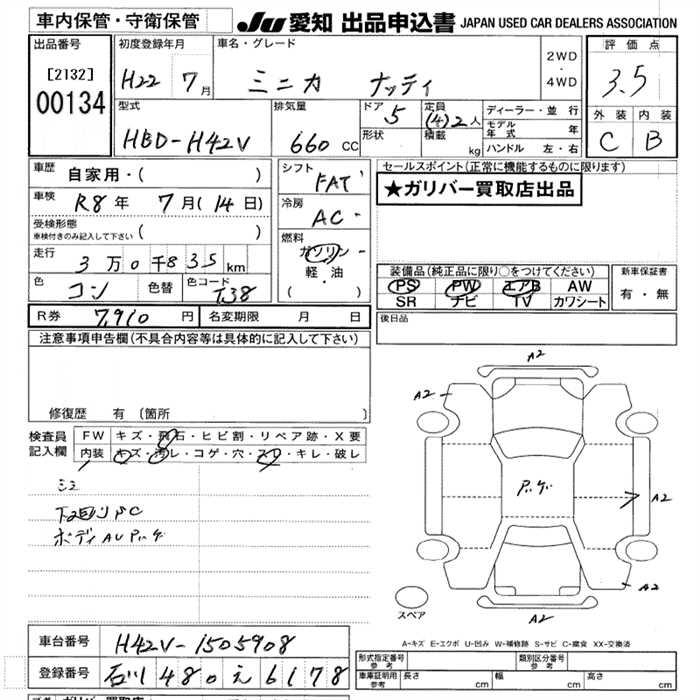 車内保管・守衛保管 JU 愛知 出品申込書 JAPAN USED CAR DEALERS ASSOCIATION
出品番号 初度登録年月 車名・グレード 評価点
[2132] 00134 H22 7月 ミニカ ナッティ 2WD・4WD 3.5
型式 排気量 ドア 定員 ディーラー・並行 外装 内装
HBD-H42V 660 CC 5 (4)2人 モデル年式 年 C B
形状 積載 kg ハンドル 左・右
車歴 自家用・( ) シフト FAT セールスポイント(正常に機能するものに限ります)
車検 R8年 7月(14日) 冷房 AC ★ガリバー買取店出品
受検形態 車検付きのみ記入して下さい ( ) 燃料 ガソリン
走行 3万0千835km 軽・油 ( )
装備品(純正品に限り○をつけてください) 新車保証書
色 コン 色替 色コード T38 PS PW エアB AW 有・無
SR ナビ TV カワシート
R券 7,910円 名変期限 月 日 後日品
注意事項申告欄(不具合内容等は具体的に記入して下さい)
修復歴 有(箇所 )
検査員記入欄 FW キズ・飛石・ヒビ割・リペア跡・X要
内装 キズ・汚レ・コゲ・穴・スレ・キレ・破レ
A2
A2
A2
A2
A2
スペア
A-キズ E-エクボ U-凹み W-補修跡 S-サビ C-腐食 XX-交換済
車台番号 H42V-1505908 形式指定番号 参考 類別区分番号 参考
登録番号 石川 480 え 6178 車庫証明用 参考 長さ cm 幅 cm 高さ cm